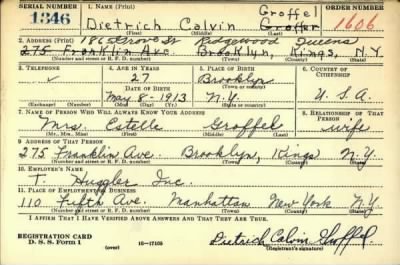 SERIAL NUMBER
1. NAME (Print)
ORDER NUMBER
1346
Dietrich Calvin Groffel
Groffer
1606
(First) (Middle) (Last)
2. ADDRESS (Print)
Ridgewood Queens
275 Franklin Ave. Brooklyn, Kings, N.Y.
(Number and street or R. F. D. number) (Town) (County) (State)
3. TELEPHONE
4. AGE IN YEARS
5. PLACE OF BIRTH
6. COUNTRY OF CITIZENSHIP
✓
27
Brooklyn
DATE OF BIRTH
May-8-1913
N.Y.
U.S.A.
(Exchange) (Number)
(Mo.) (Day) (Yr.)
(State or country)
7. NAME OF PERSON WHO WILL ALWAYS KNOW YOUR ADDRESS
8. RELATIONSHIP OF THAT PERSON
Mrs. Estelle Groffel
wife
(Mr., Mrs., Miss) (First) (Middle) (Last)
9. ADDRESS OF THAT PERSON
275 Franklin Ave. Brooklyn, Kings N.Y.
(Number and street or R. F. D. number) (Town) (County) (State)
10. EMPLOYER'S NAME
T. Huggler Inc.
11. PLACE OF EMPLOYMENT OR BUSINESS
110 Fifth Ave. Manhattan New York N.Y.
(Number and street or R. F. D. number) (Town) (County) (State)
I AFFIRM THAT I HAVE VERIFIED ABOVE ANSWERS AND THAT THEY ARE TRUE.
REGISTRATION CARD
D. S. S. Form 1
(over) 16-17105
Dietrich Calvin Groffel
(Registrant's signature)